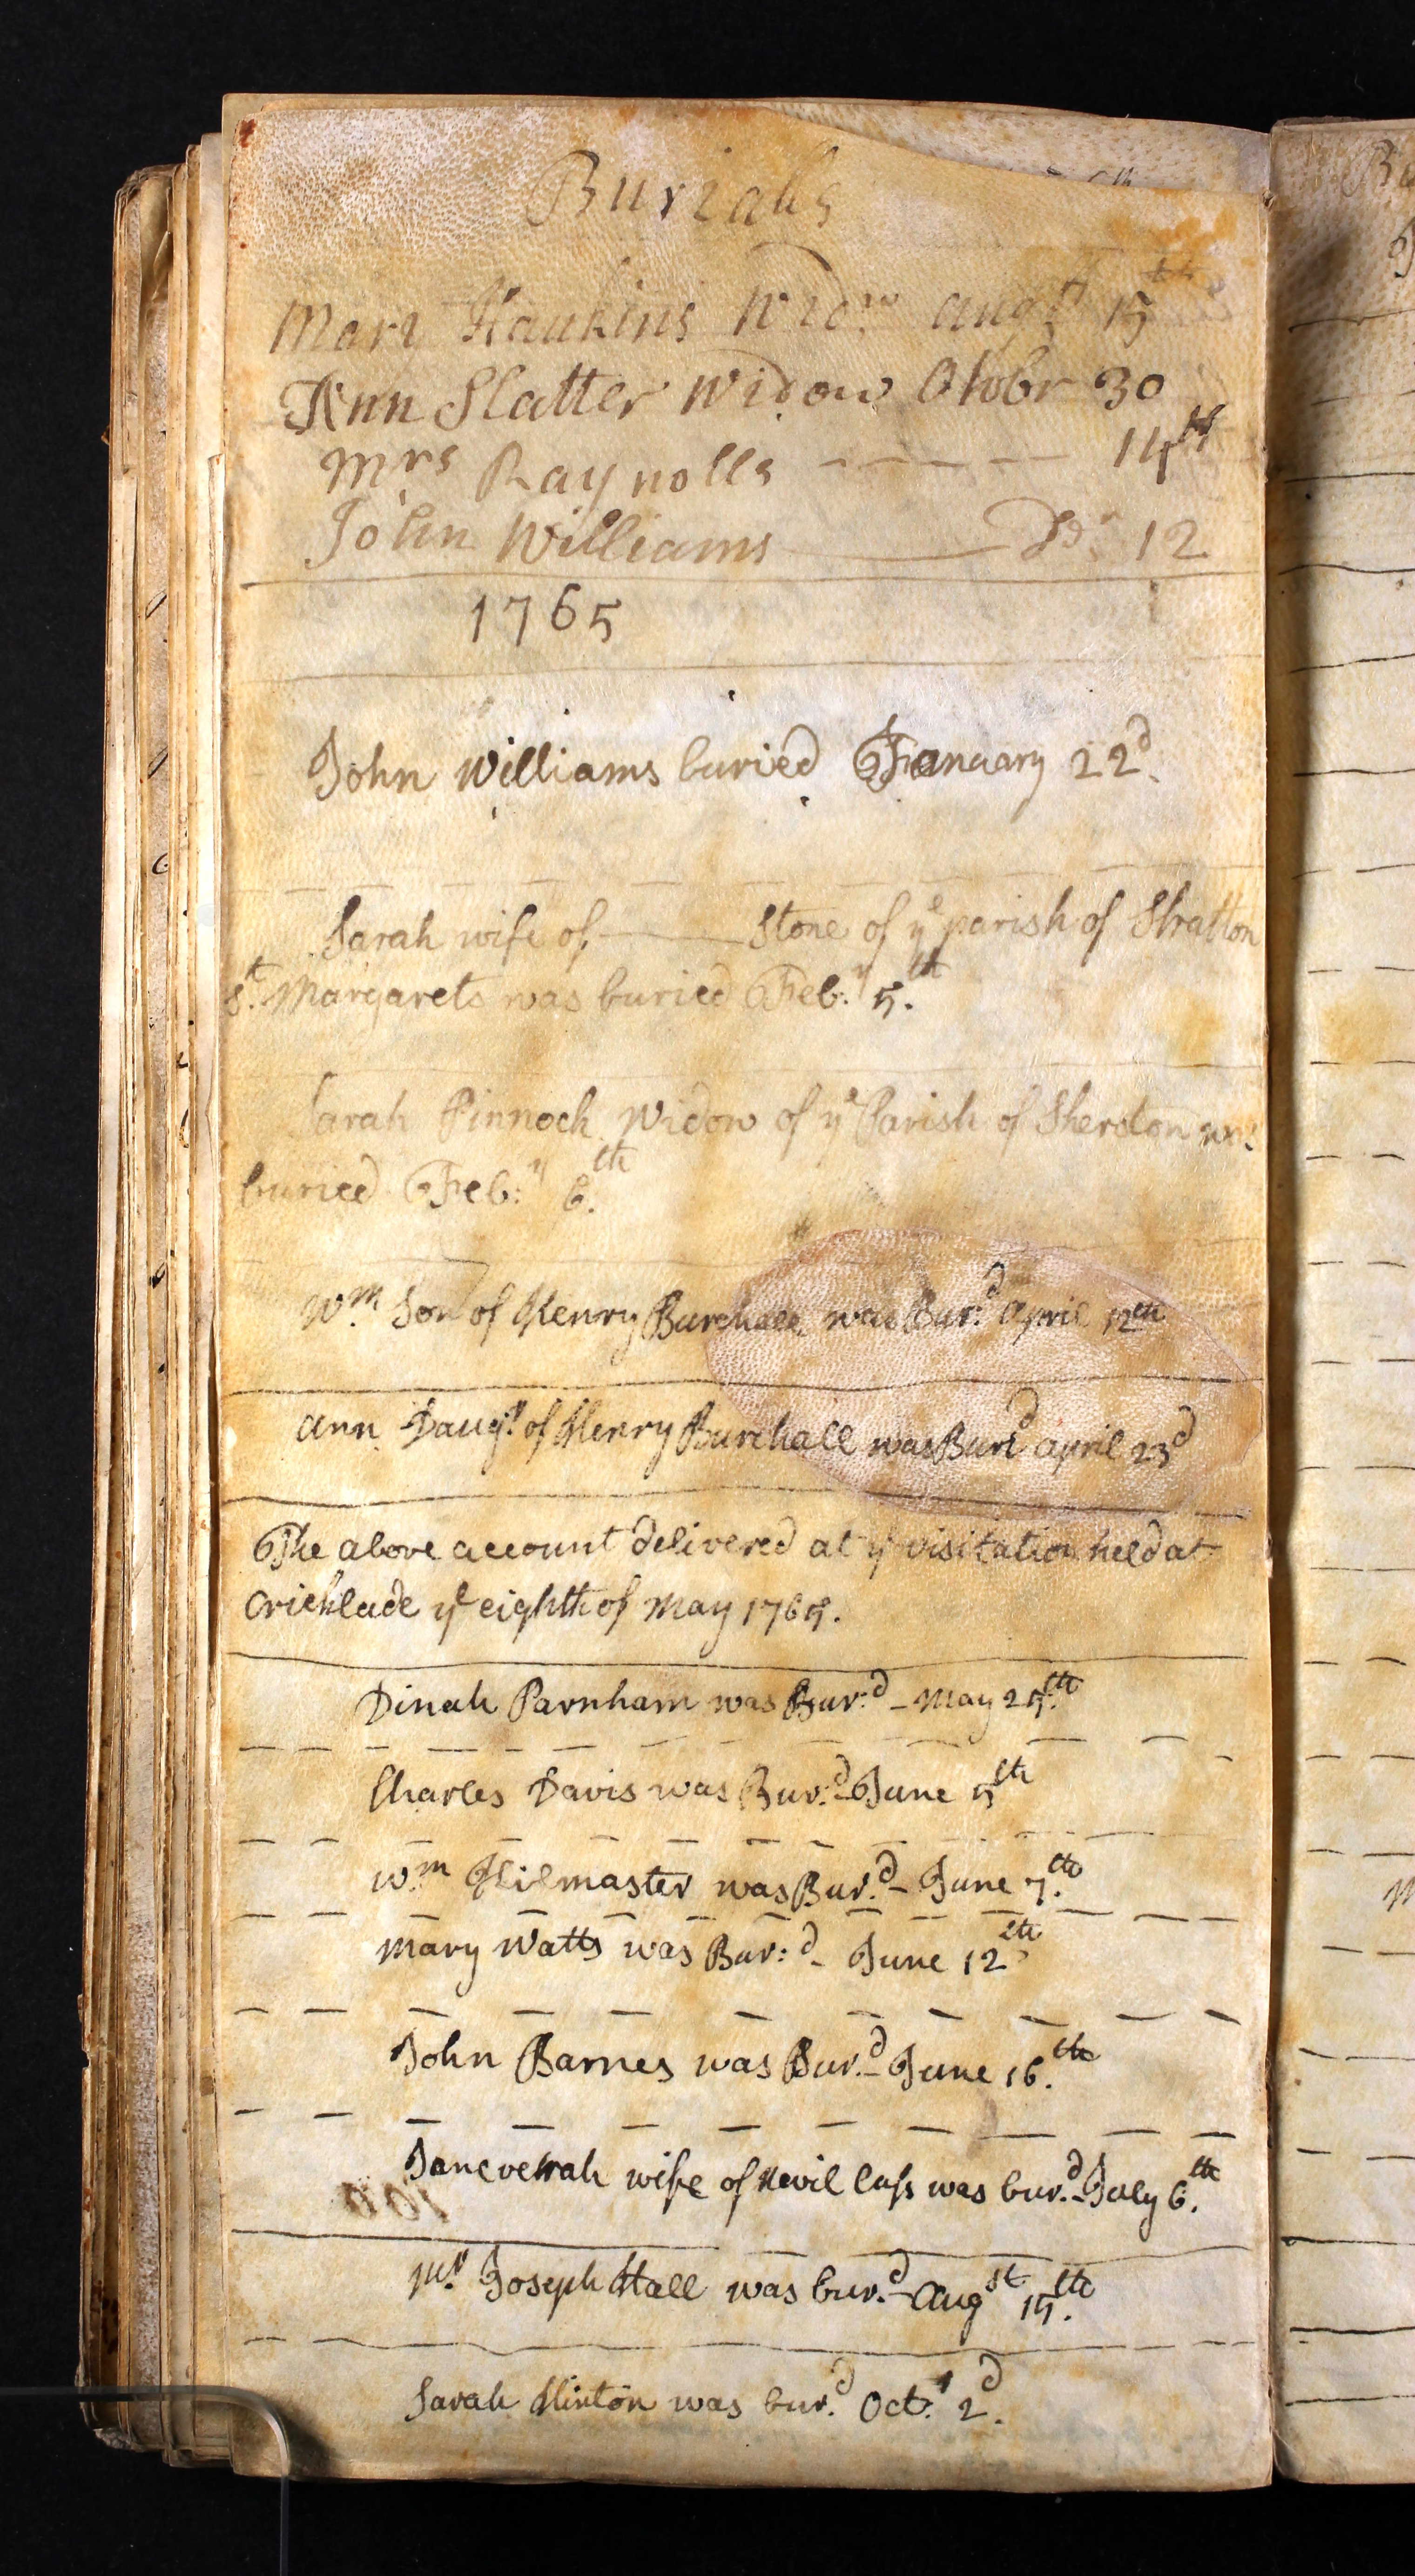 Burials
Mary Haukins Widw augst 15th
Ann Slatter Widow Octobr 30
Mrs Raynolls 14th
John Williams Do 12
1765
John Williams buried January 22d.
Sarah wife of ——— Stone of ye parish of Stratton
St. Margarets was buried Feb:y 5.th
Sarah Pinnock Widow of ye Parish of Sherston
buried Feb:y 6.th
Wm. Son of Henry Burchall was Bur:d April 12th
Ann Daugr. of Henry Burchall was Burd april 23d
The above account delivered at ye visitation held at
Cricklade ye eighth of May 1765.
Dinah Parnham was Bur:d - May 25.th
Charles Davis was Bur:d - June 5th
Wm. Hilmaster was Bur.d - June 7.th
Mary Watts was Bur:d - June 12th
John Barnes was Bur.d - June 16.th
wife of Nevil was bur.d - July 6.th
Mr. Joseph Hall was bur.d - Augst 15.th
Sarah Hinton was bur.d Octr. 2d.